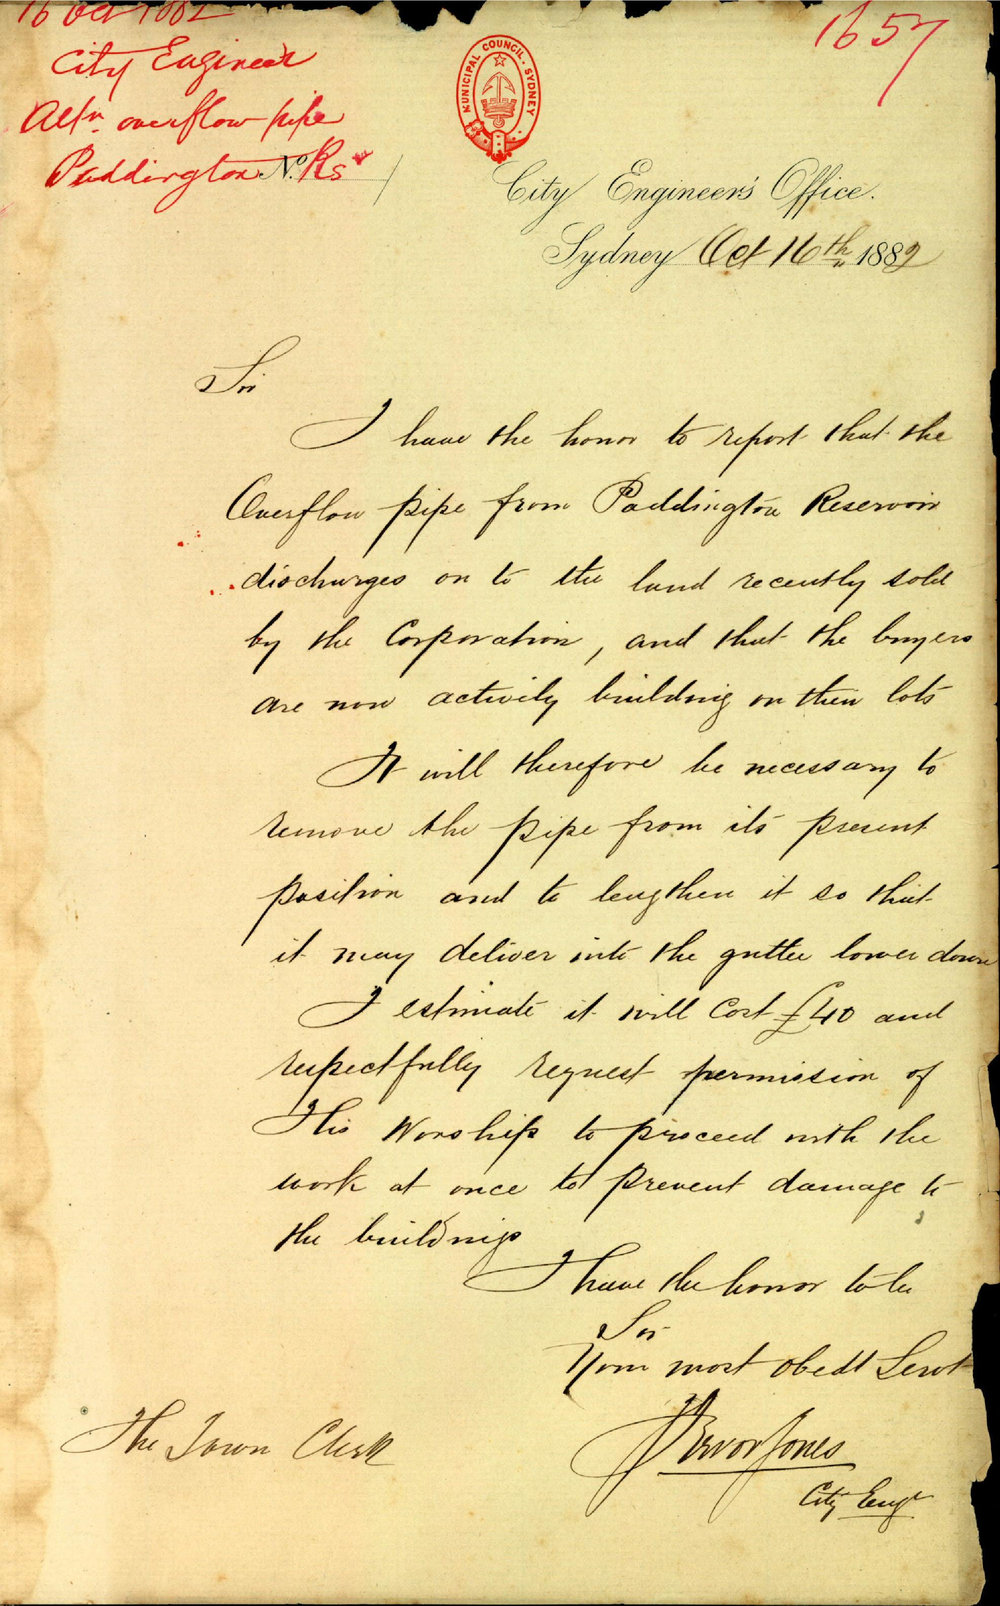 16 Oct 1882
City Engineer
Altn. overflow pipe
Paddington Rsvr
No.
1657
MUNICIPAL COUNCIL. SYDNEY
City Engineer's Office.
Sydney Oct 16th 1882
Sir
I have the honor to report that the
Overflow pipe from Paddington Reservoir
discharges on to the land recently sold
by the Corporation, and that the buyers
are now actively building on their lots
It will therefore be necessary to
remove the pipe from its present
position and to lengthen it so that
it may deliver into the gutter lower down
I estimate it will cost £40 and
respectfully request permission of
His Worship to proceed with the
work at once to prevent damage to
the buildings
I have the honor to be
Sir
Your most obedt Servt
Trevor Jones
City Engr
The Town Clerk